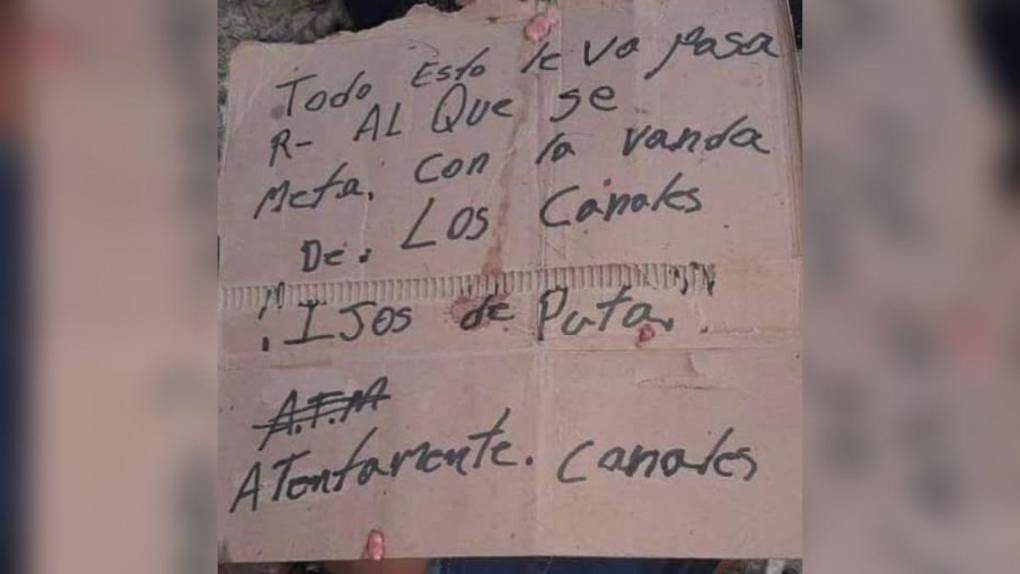 Todo Esto le va pasa
R- AL Que se
Meta. con la vanda
De. Los Canales
¡IJos de Puta!
A.T.M
ATentamente. canales